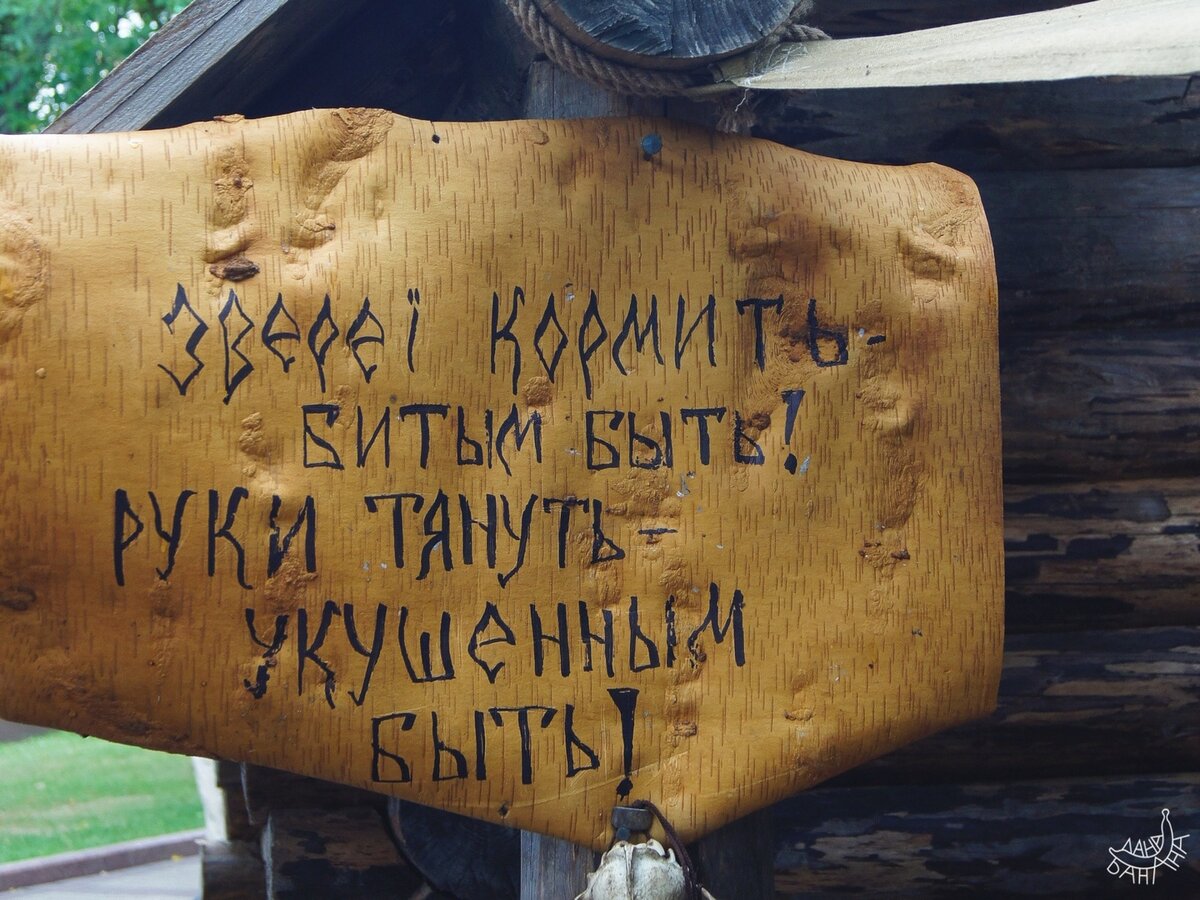 звереї кормить-
битым быть!
руки тянуть-
укушенным
быть!